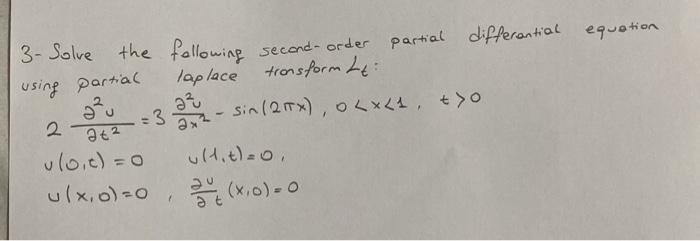 3- Solve the following second-order partial differantial equation
using partial laplace transform Lt:
2 ∂²u/∂t² = 3 ∂²u/∂x² - sin(2πx), 0<x<1, t>0
u(0,t)=0 u(1,t)=0,
u(x,0)=0, ∂u/∂t (x,0)=0